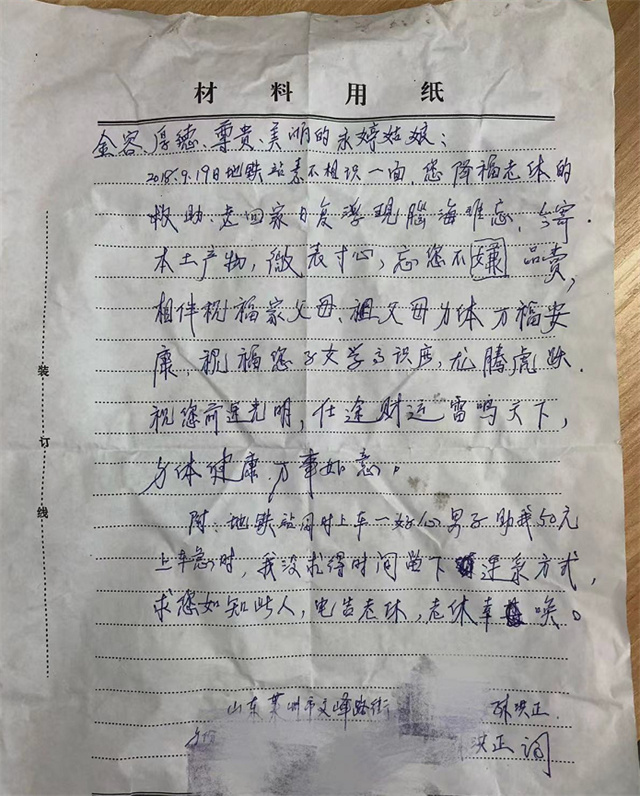 材料用纸
金容、厚德、尊贵、美丽的永婷姑娘:
2018.9.19日地铁站素不相识一面,您降福老体的
救助,老回家日复浮现脑海难忘,今寄
本土产物,微表寸心,忘您不嫌 品赍,
相伴祝福家父母、祖父母身体万福安
康,祝福您文学高识度,龙腾虎跃.
祝您前途光明,仕途财运雷鸣天下,
身体健康万事如意。
附:地铁站同时上车一好心男子助我50元
上车急时,我没求得时间留下 连系方式,
求您如知此人,电告老体,老体幸 唤。
山东莱州市文峰路街 洪正.
洪正词
装
订
线